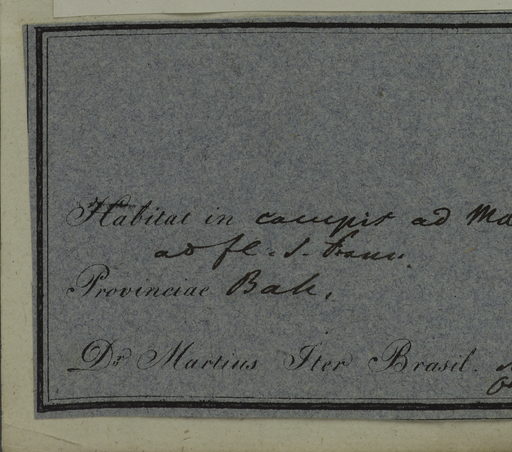 Habitat in campis ad
ad fl. S. Franc.
Provinciae Bah.
Dr. Martius Iter Brasil.